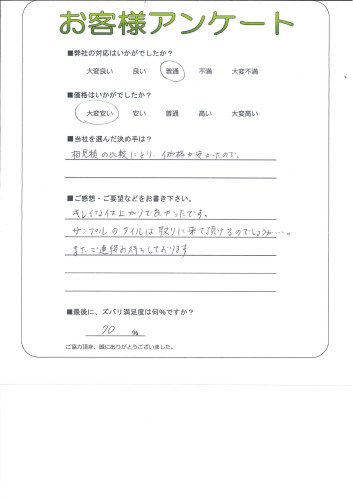 お客様アンケート
■弊社の対応はいかがでしたか？
大変良い 良い 普通 不満 大変不満
■価格はいかがでしたか？
大変安い 安い 普通 高い 大変高い
■当社を選んだ決め手は？
相見積の比較により、価格が安かったので。
■ご感想・ご要望などをお書き下さい。
キレイな仕上がりで良かったです。
サンプルのタイルは取りに来て頂けるのでしょうか…。
またご連絡お待ちしております
■最後に、ズバリ満足度は何%ですか？
70 %
ご協力頂き、誠にありがとうございました。